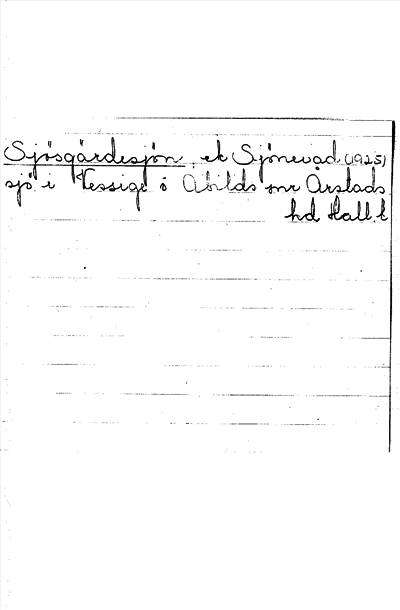 Sjösgärdesjön, ek Sjönevad (1925)
sjö i Vessige o Abilds snr Årstads
hd Hall.l